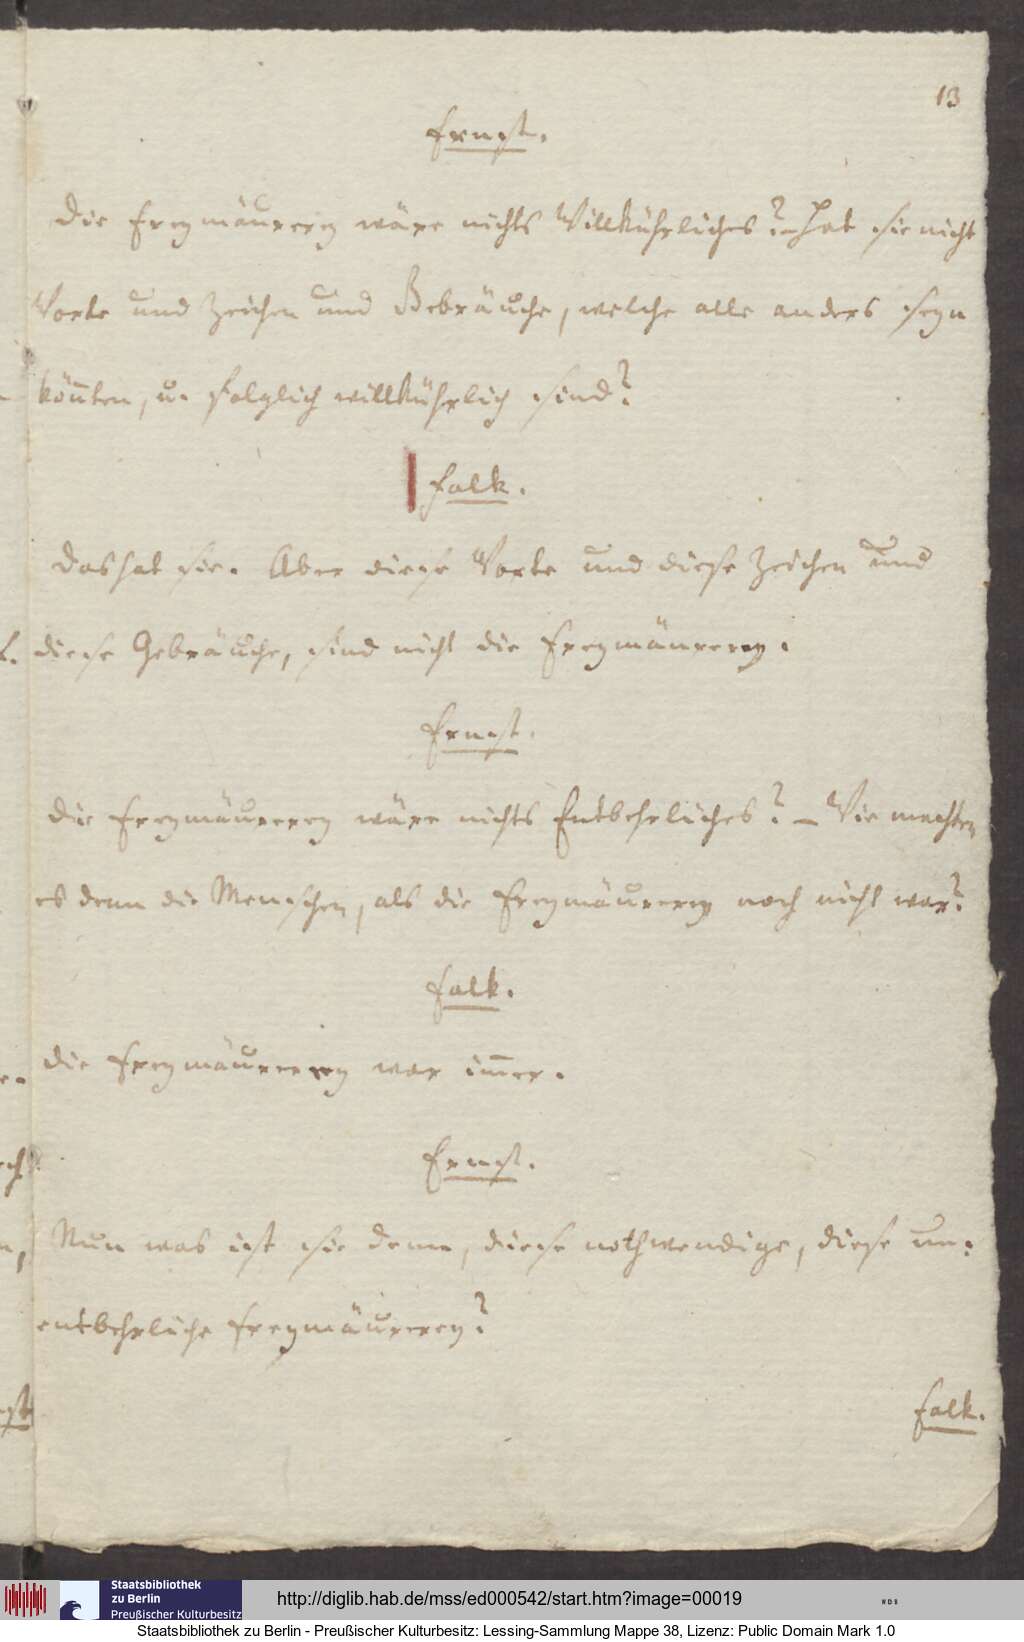 13
Ernst.
Die Freymäurerey wäre nichts Willkührliches? – Hat sie nicht
Worte und Zeichen und Gebräuche, welche alle anders seyn
kön̄ten, u. folglich willkührlich sind?
Falk.
Das hat sie. Aber diese Worte und diese Zeichen und
diese Gebräuche, sind nicht die Freymäurerey.
Ernst.
Die Freymäurerey wäre nichts Entbehrliches? – Wie machten
es denn die Menschen, als die Freymäurerey noch nicht war?
Falk.
Die Freymäurerey war im̄er.
Ernst.
Nun was ist sie denn, diese nothwendige, diese un:
entbehrliche Freymäurerey?
Falk.
Staatsbibliothek
zu Berlin
Preußischer Kulturbesitz
http://diglib.hab.de/mss/ed000542/start.htm?image=00019
WDB
Staatsbibliothek zu Berlin - Preußischer Kulturbesitz: Lessing-Sammlung Mappe 38, Lizenz: Public Domain Mark 1.0